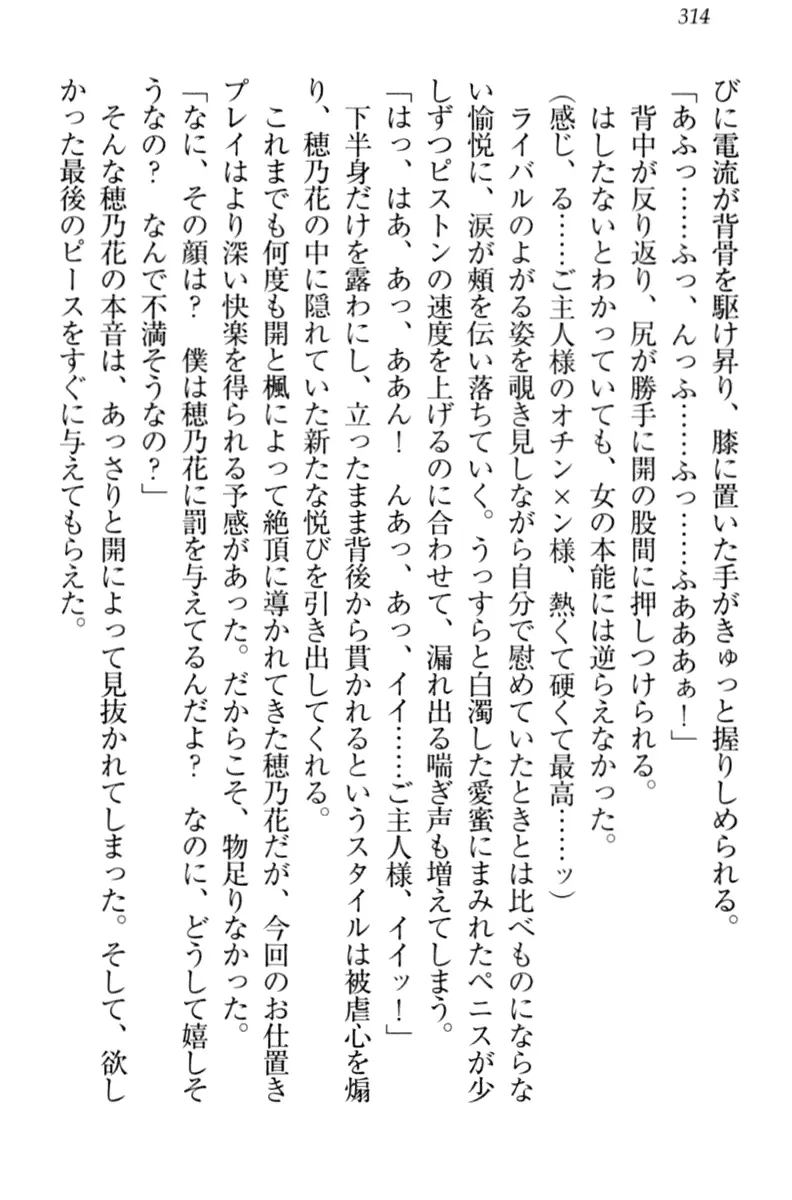 314
びに電流が背骨を駆け昇り、膝に置いた手がきゅっと握りしめられる。
「あふっ……ふっ、んっふ……ふっ……ふあああぁ！」
背中が反り返り、尻が勝手に開の股間に押しつけられる。
はしたないとわかっていても、女の本能には逆らえなかった。
(感じ、る……ご主人様のオチン×ン様、熱くて硬くて最高……ッ)
ライバルのよがる姿を覗き見しながら自分で慰めていたときとは比べものにならな
い愉悦に、涙が頰を伝い落ちていく。うっすらと白濁した愛蜜にまみれたペニスが少
しずつピストンの速度を上げるのに合わせて、漏れ出る喘ぎ声も増えてしまう。
「はっ、はあ、あっ、ああん！　んあっ、あっ、イイ……ご主人様、イイッ！」
下半身だけを露わにし、立ったまま背後から貫かれるというスタイルは被虐心を煽
り、穂乃花の中に隠れていた新たな悦びを引き出してくれる。
これまでも何度も開と楓によって絶頂に導かれてきた穂乃花だが、今回のお仕置き
プレイはより深い快楽を得られる予感があった。だからこそ、物足りなかった。
「なに、その顔は？　僕は穂乃花に罰を与えてるんだよ？　なのに、どうして嬉しそ
うなの？　なんで不満そうなの？」
そんな穂乃花の本音は、あっさりと開によって見抜かれてしまった。そして、欲し
かった最後のピースをすぐに与えてもらえた。